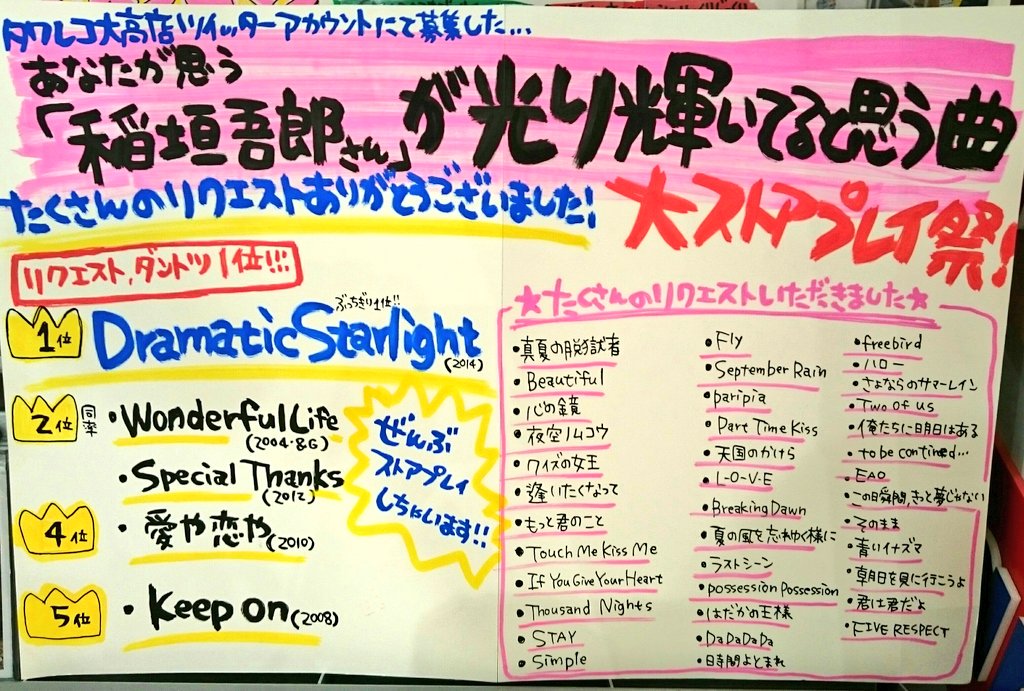 タワレコ大高店ツイッターアカウントにて募集した...
あなたが思う
「稲垣吾郎さん」が光り輝いてると思う曲
たくさんのリクエストありがとうございました!
大ストアプレイ祭!
リクエスト、ダントツ1位!!!
ぶっちぎり1位!!
1位 Dramatic Starlight
(2014)
2位 同率 ・Wonderful Life
(2004・8.6)
・Special Thanks
(2012)
4位 ・愛や恋や(2010)
5位 ・Keep on(2008)
ぜんぶ
ストアプレイ
しちゃいます!!
☆たくさんのリクエストいただきました☆
・真夏の脱獄者
・Beautiful
・心の鏡
・夜空ノムコウ
・クイズの女王
・逢いたくなって
・もっと君のこと
・Touch Me Kiss Me
・If You Give Your Heart
・Thousand Nights
・STAY
・Simple
・Fly
・September Rain
・paripia
・Part Time Kiss
・天国のかけら
・L-O-V-E
・Breaking Dawn
・夏の風を忘れゆく様に
・ラストシーン
・possession Possession
・はだかの王様
・DaDaDaDa
・時間よとまれ
・freebird
・ハロー
・さよならのサマーレイン
・Two of us
・俺たちに明日はある
・to be contined...
・EAO
・この瞬間、きっと夢じゃない
・そのまま
・青いイナズマ
・朝日を見に行こうよ
・君は君だよ
・FIVE RESPECT